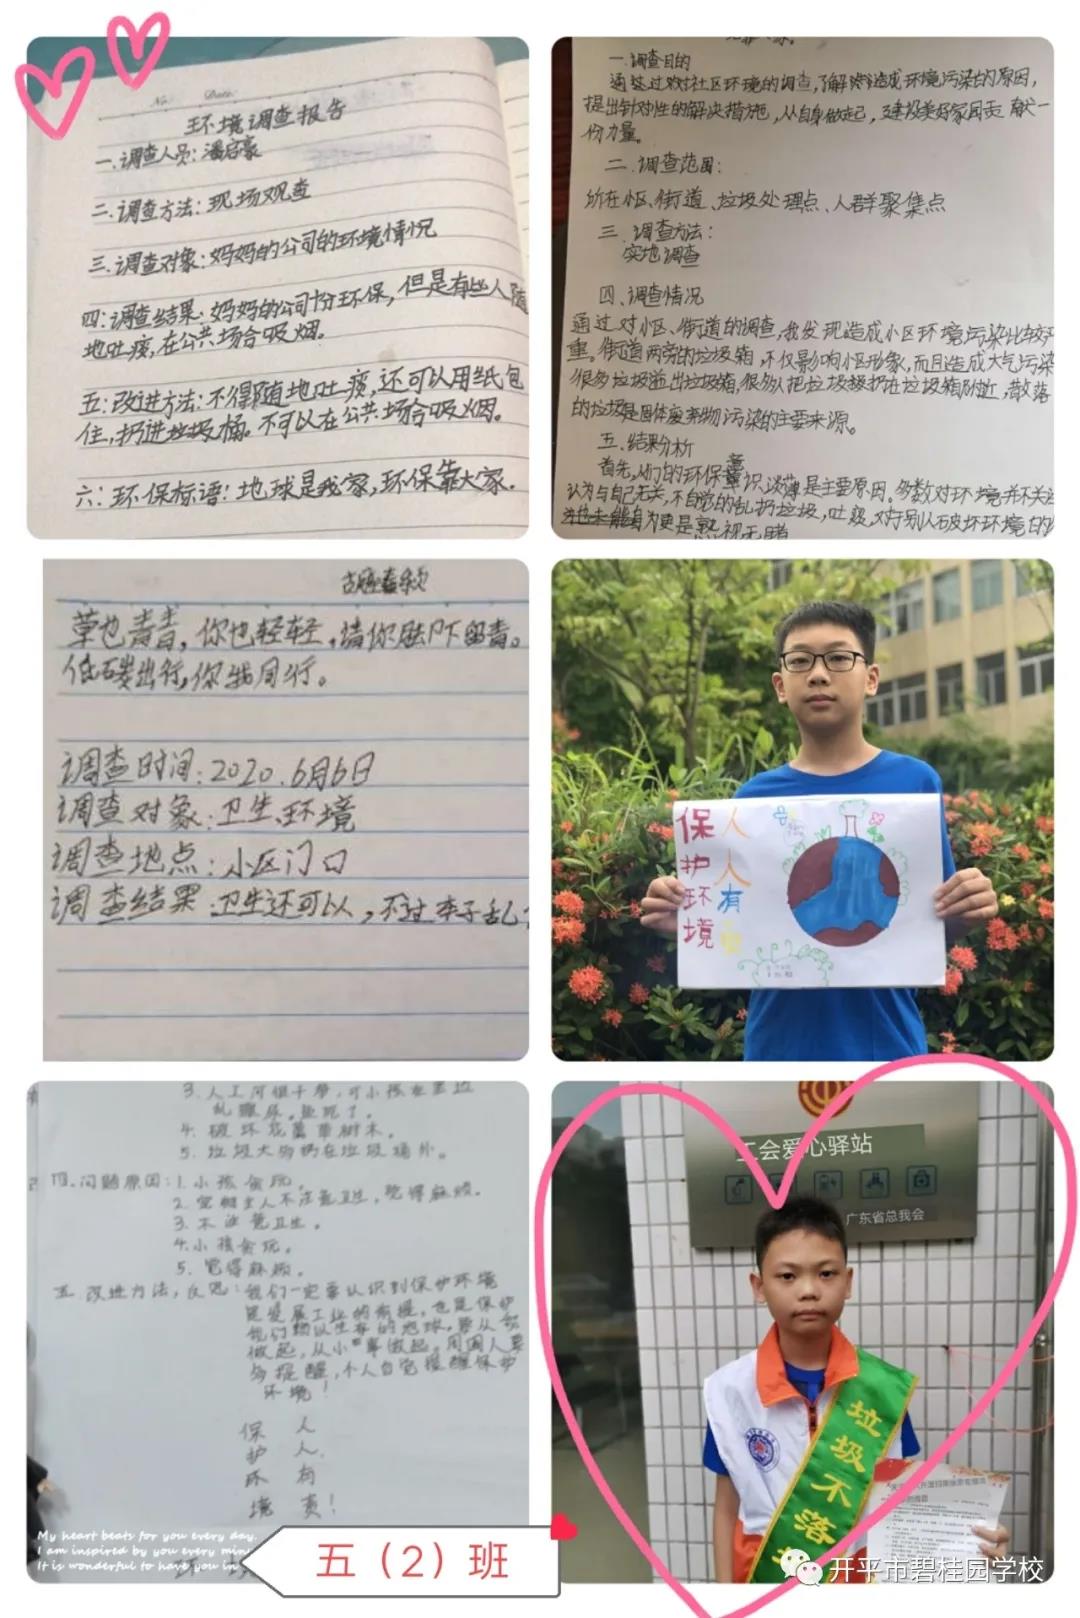 No. Date.
环境调查报告
一.调查人员:潘启豪
二.调查方法:现场观查
三.调查对象:妈妈的公司的环境情况
四:调查结果:妈妈的公司十分环保,但是有些人随
地吐痰,在公共场合吸烟。
五:改进方法:不得随地吐痰,还可以用纸包
住,扔进垃圾桶。不可以在公共场合吸烟。
六:环保标语:地球是我家,环保靠大家.
一.调查目的
通过对社区环境的调查,了解造成环境污染的原因,
提出针对性的解决措施,从自身做起,建设美好家园贡献一
份力量。
二.调查范围:
所在小区、街道、垃圾处理点、人群聚集点
三.调查方法:
实地调查
四、调查情况
通过对小区、街道的调查,我发现造成小区环境污染比较严
重。街道两旁的垃圾箱,不仅影响小区形象,而且造成大气污染
很多垃圾溢出垃圾箱,很多人把垃圾扔在垃圾箱附近,散落
的垃圾是固体废弃物污染的主要来源。
五.结果分析
首先,人们的环保意识淡薄是主要原因。多数对环境并不关
认为与自己无关,不自觉的乱扔垃圾,吐痰,对于别人破坏环境的
为更是熟视无睹
草也青青,你也轻轻,请你脚下留青。
低碳出行,你我同行。
调查时间:2020.6月6日
调查对象:卫生、环境
调查地点:小区门口
调查结果:卫生还可以,不过车子乱
保护环境
人人有
3.人工河很干净,可小孩在里边
乱撒尿。鱼死了。
4.破坏花草树木。
5.垃圾大多扔在垃圾桶外。
四.问题原因:1.小孩贪玩。
2.宠物主人不注意卫生,觉得麻烦。
3.不注意卫生。
4.小孩贪玩。
5.觉得麻烦。
五.改进方法,反思:我们一定要认识到保护环境
是发展工业的前提,也是保护
我们赖以生存的地球。要从我
做起,从小事做起。周围人要
多提醒,个人自觉提醒保护
环境!
保护环境
人人有责!
工会爱心驿站
广东省总工会
垃圾不落
My heart beats for you every day.
I am inspired by you every minu
It is wonderful to have you in
五(2)班
开平市碧桂园学校